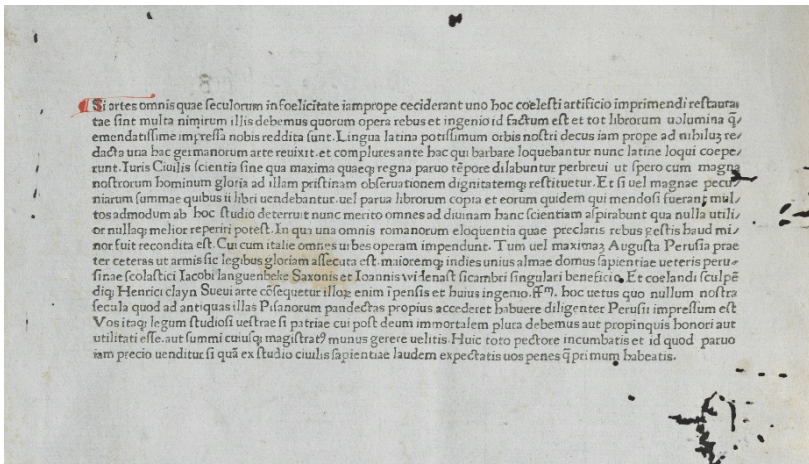 Si artes omnis quae seculorum infoelicitate iamprope ceciderant uno hoc coelesti artificio imprimendi restaura/
tae sint multa nimirum illis debemus quorum opera rebus et ingenio id factum est et tot librorum uolumina q̄
emendatissime impressa nobis reddita sunt. Lingua latina potissimum orbis nostri decus iam prope ad nihiluꝫ re/
dacta una hac germanorum arte reuixit. et complures ante hac qui barbare loquebantur nunc latine loqui coepe/
runt. Iuris Ciuilis scientia sine qua maxima quaeqꝫ regna paruo tēpore dilabuntur perbreui ut spero cum magna
nostrorum hominum gloria ad illam pristinam obseruationem dignitatemqꝫ restituetur. Et si uel magnae pecu/
niarum summae quibus ii libri uendebantur. uel parua librorum copia et eorum quidem qui mendosi fuerant mul/
tos admodum ab hoc studio deterruit nunc merito omnes ad diuinam hanc scientiam aspirabunt qua nulla utili/
or nullaqꝫ melior reperiri potest. In qua una omnis romanorum eloquentia quae preclaris rebus gestis haud mi/
nor fuit recondita est. Cui cum italie omnes urbes operam impendunt. Tum uel maximaꝫ Augusta Perusia prae
ter ceteras ut armis sic legibus gloriam assecuta est. maioremqꝫ indies unius almae domus sapientiae ueteris peru/
sinae scolastici Iacobi languenbeke Saxonis et Ioannis widenast sicambri singulari beneficio. Et coelandi sculpē
diqꝫ Henrici clayn Sueui arte cōsequetur illoꝝ enim īpensis et huius ingenio. hoc uetus quo nullum nostra
secula quod ad antiquas illas Pisanorum pandectas propius accederet habuere diligenter Perusii impressum est
Vos itaqꝫ legum studiosi uestrae si patriae cui post deum immortalem plura debemus aut propinquis honori aut
utilitati esse. aut summi cuiusqꝫ magistratꝰ munus gerere uelitis. Huic toto pectore incumbatis et id quod paruo
iam precio uenditur si quā ex studio ciuilis sapientiae laudem expectatis uos penes q̄primum habeatis.